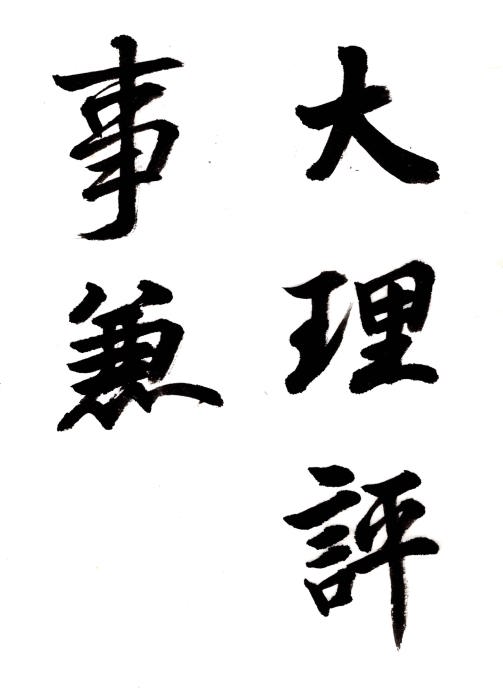 大理評
事兼